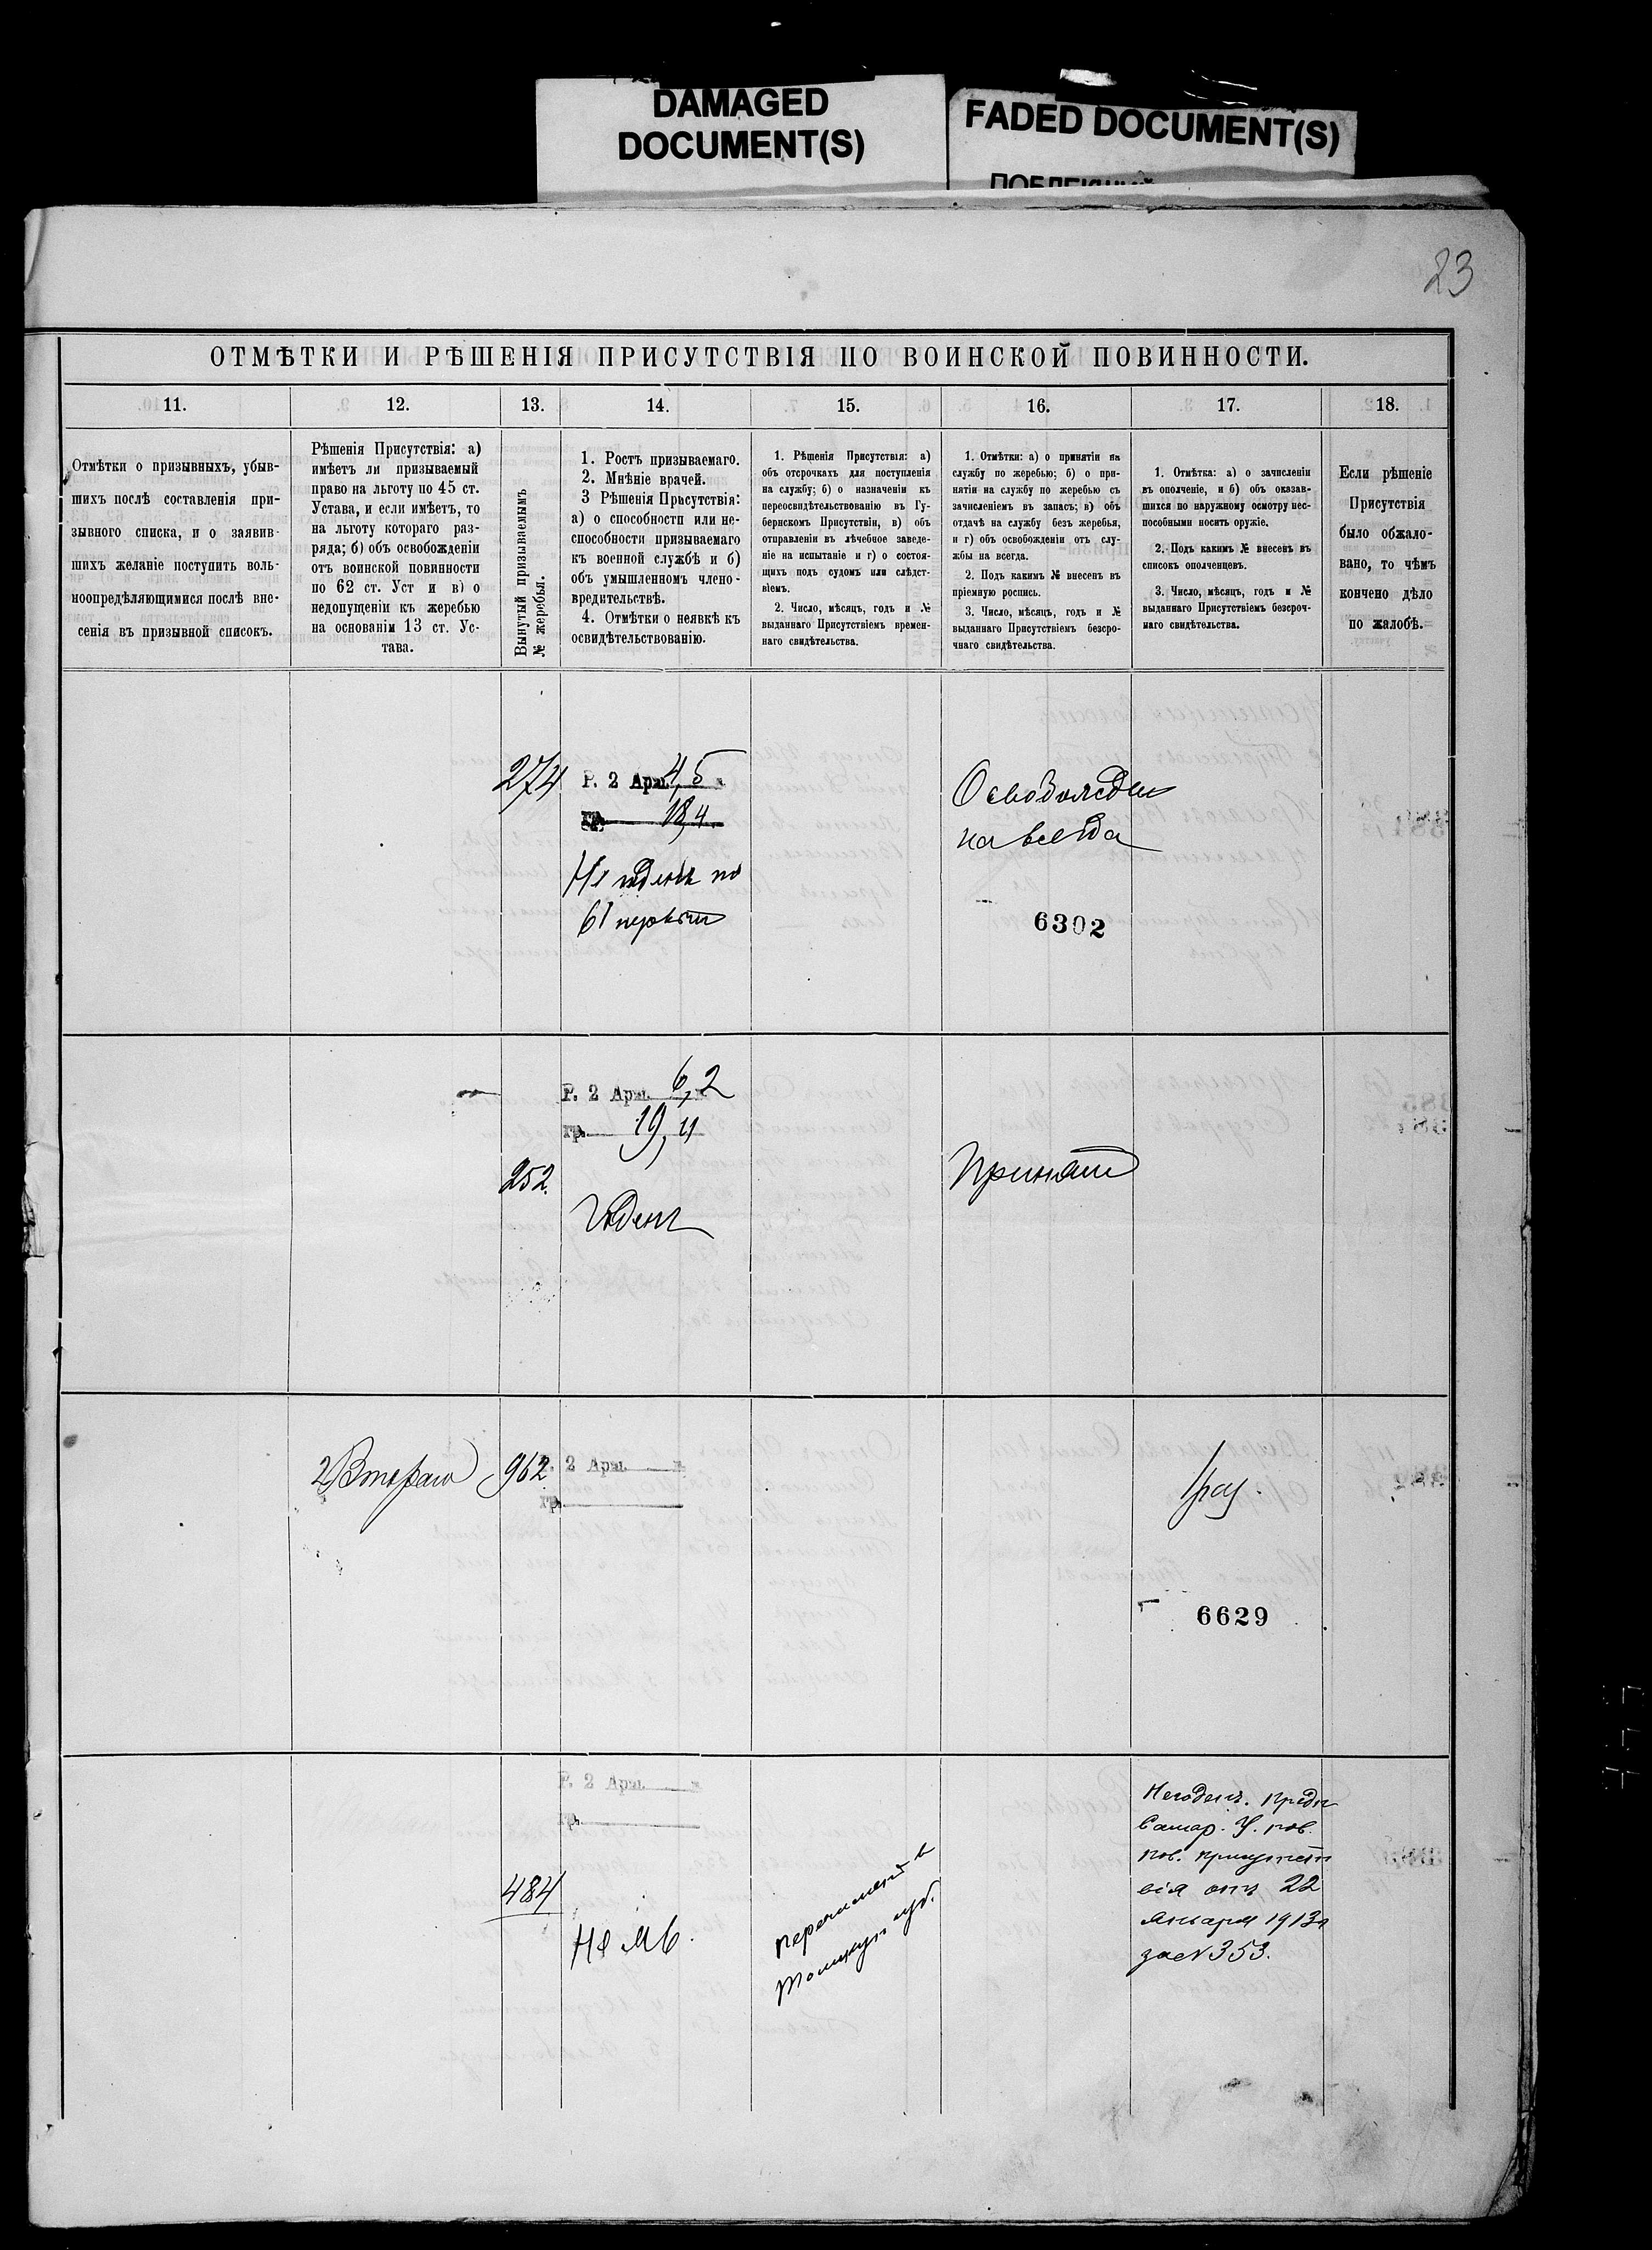 DAMAGED
DOCUMENT(S)
FADED DOCUMENT(S)
23
ОТМѢТКИ И РѢШЕНІЯ ПРИСУТСТВІЯ ПО ВОИНСКОЙ ПОВИННОСТИ.
11.
12.
13.
14.
15.
16.
17.
18.
Отмѣтки о призывныхъ, убыв-
шихъ послѣ составленія при-
зывного списка, и о заявив-
шихъ желаніе поступить воль-
ноопредѣляющимися послѣ вне-
сенія въ призывной списокъ.
Рѣшенія Присутствія: а)
имѣетъ ли призываемый
право на льготу по 45 ст.
Устава, и если имѣетъ, то
на льготу котораго раз-
ряда; б) объ освобожденіи
отъ воинской повинности
по 62 ст. Уст и в) о
недопущеніи къ жеребью
на основаніи 13 ст. Ус-
тава.
Вынутый призываемымъ
№ жеребья.
1. Ростъ призываемаго.
2. Мнѣніе врачей.
3 Рѣшенія Присутствія:
а) о способности или не-
способности призываемаго
къ военной службѣ и б)
объ умышленномъ члено-
вредительствѣ.
4. Отмѣтки о неявкѣ къ
освидѣтельствованію.
1. Рѣшенія Присутствія: а)
объ отсрочкахъ для поступленія
на службу; б) о назначеніи къ
переосвидѣтельствованію въ Гу-
бернскомъ Присутствіи, в) объ
отправленіи въ лѣчебное заведе-
ніе на испытаніе и г) о состоя-
щихъ подъ судомъ или слѣдст-
віемъ.
2. Число, мѣсяцъ, годъ и №
выданнаго Присутствіемъ времен-
наго свидѣтельства.
1. Отмѣтки: а) о принятіи на
службу по жеребью; б) о при-
нятіи на службу по жеребью съ
зачисленіемъ въ запасъ; в) объ
отдачѣ на службу безъ жеребья,
и г) объ освобожденіи отъ слу-
жбы на всегда.
2. Подъ какимъ № внесенъ въ
пріемную роспись.
3. Число, мѣсяцъ, годъ и №
выданнаго Присутствіемъ безсро-
чнаго свидѣтельства.
1. Отмѣтка: а) о зачисленіи
въ ополченіе, и б) объ оказав-
шихся по наружному осмотру нес-
пособными носить оружіе.
2. Подъ какимъ № внесенъ въ
списокъ ополченцевъ.
3. Число, мѣсяцъ, годъ и №
выданнаго Присутствіемъ безсроч-
наго свидѣтельства.
Если рѣшеніе
Присутствія
было обжало-
вано, то чѣмъ
кончено дѣло
по жалобѣ.
274
Р. 2 Арш. 4,5
гр. 18,4
Не годенъ по
61
Освобожден
на всегда
6302
Р. 2 Арш. 6,2
гр. 19,4
252.
Годенъ
Принят
2 Втораго
962
Р. 2 Арш.
гр.
6629
Р. 2 Арш.
гр.
484
Не яв.
перечислен в
губ.
Негоденъ. предп
Самар. У. по в.
пов. присутст
вія отъ 22
Января 1913 г
за № 353.